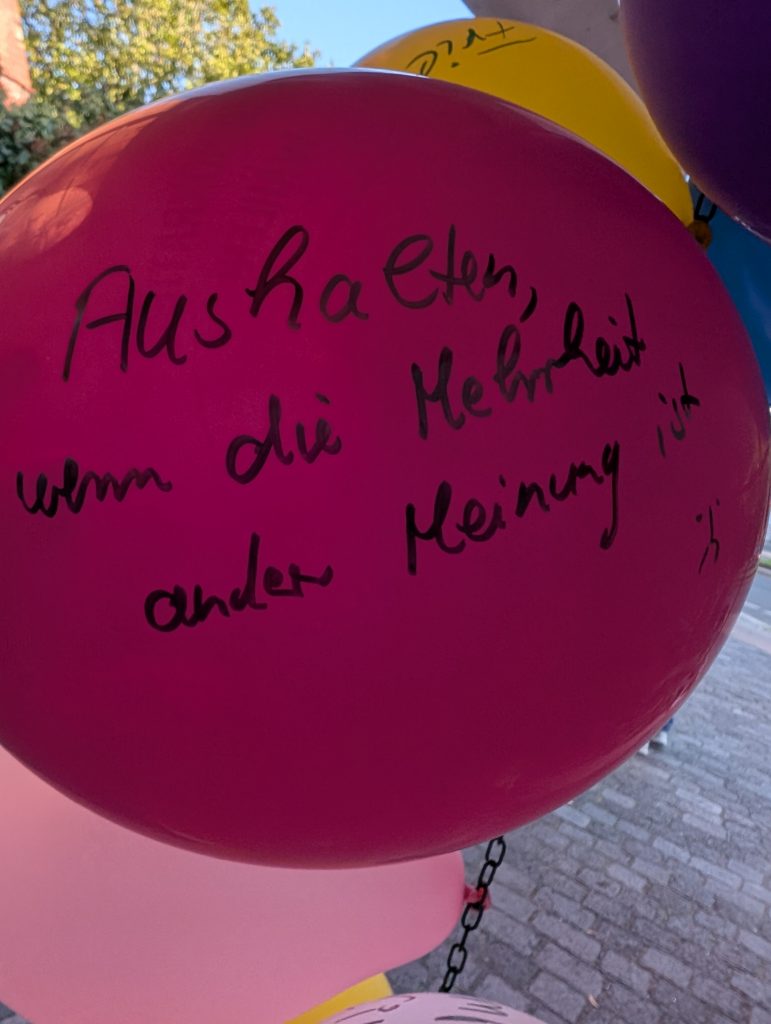 Aushalten,
wenn die Mehrheit
ander Meinung ist
:)